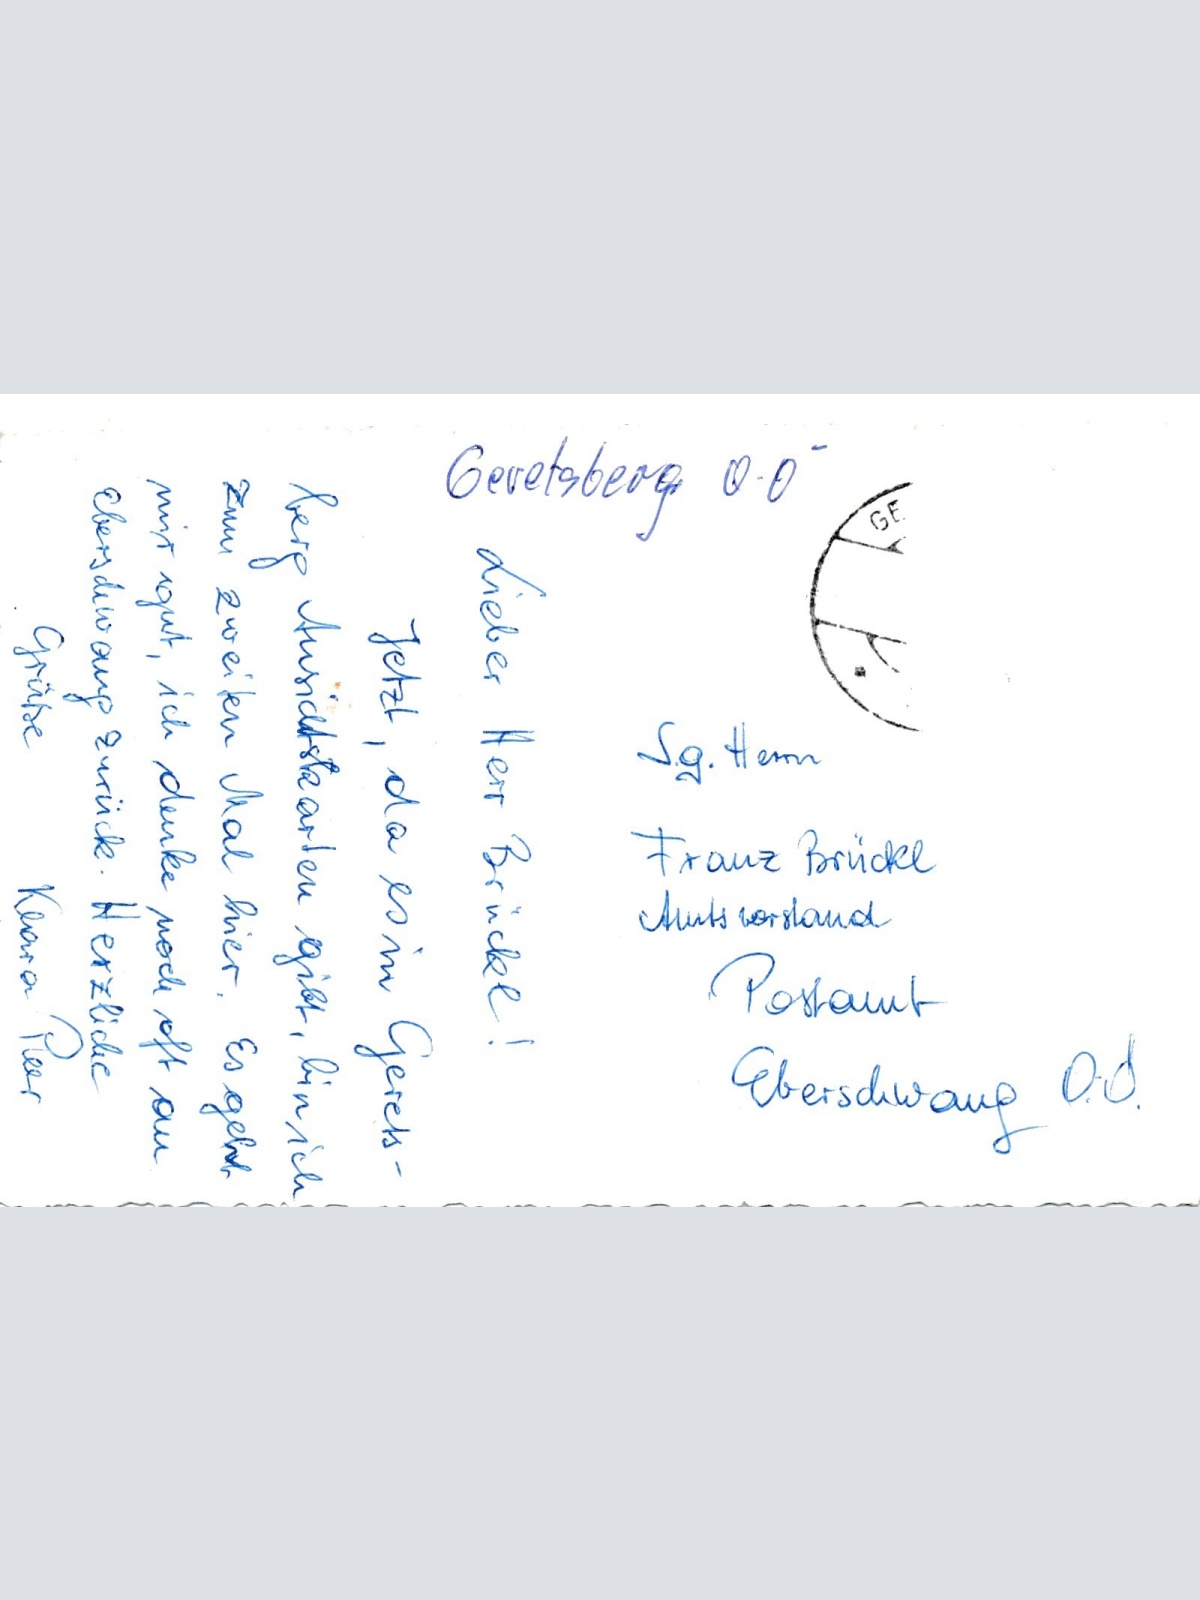 Geretsberg O.Ö
GE
Lieber Herr Brückl!
Jetzt, da es in Gerets-
berg Ansichtskarten gibt, bin ich
zum zweiten Mal hier. Es geht
mir gut, ich denke noch oft an
Eberschwang zurück. Herzliche
Grüße Klara
S.g. Herrn
Franz Brückl
Amtsvorstand
Postamt
Eberschwang O.Ö.